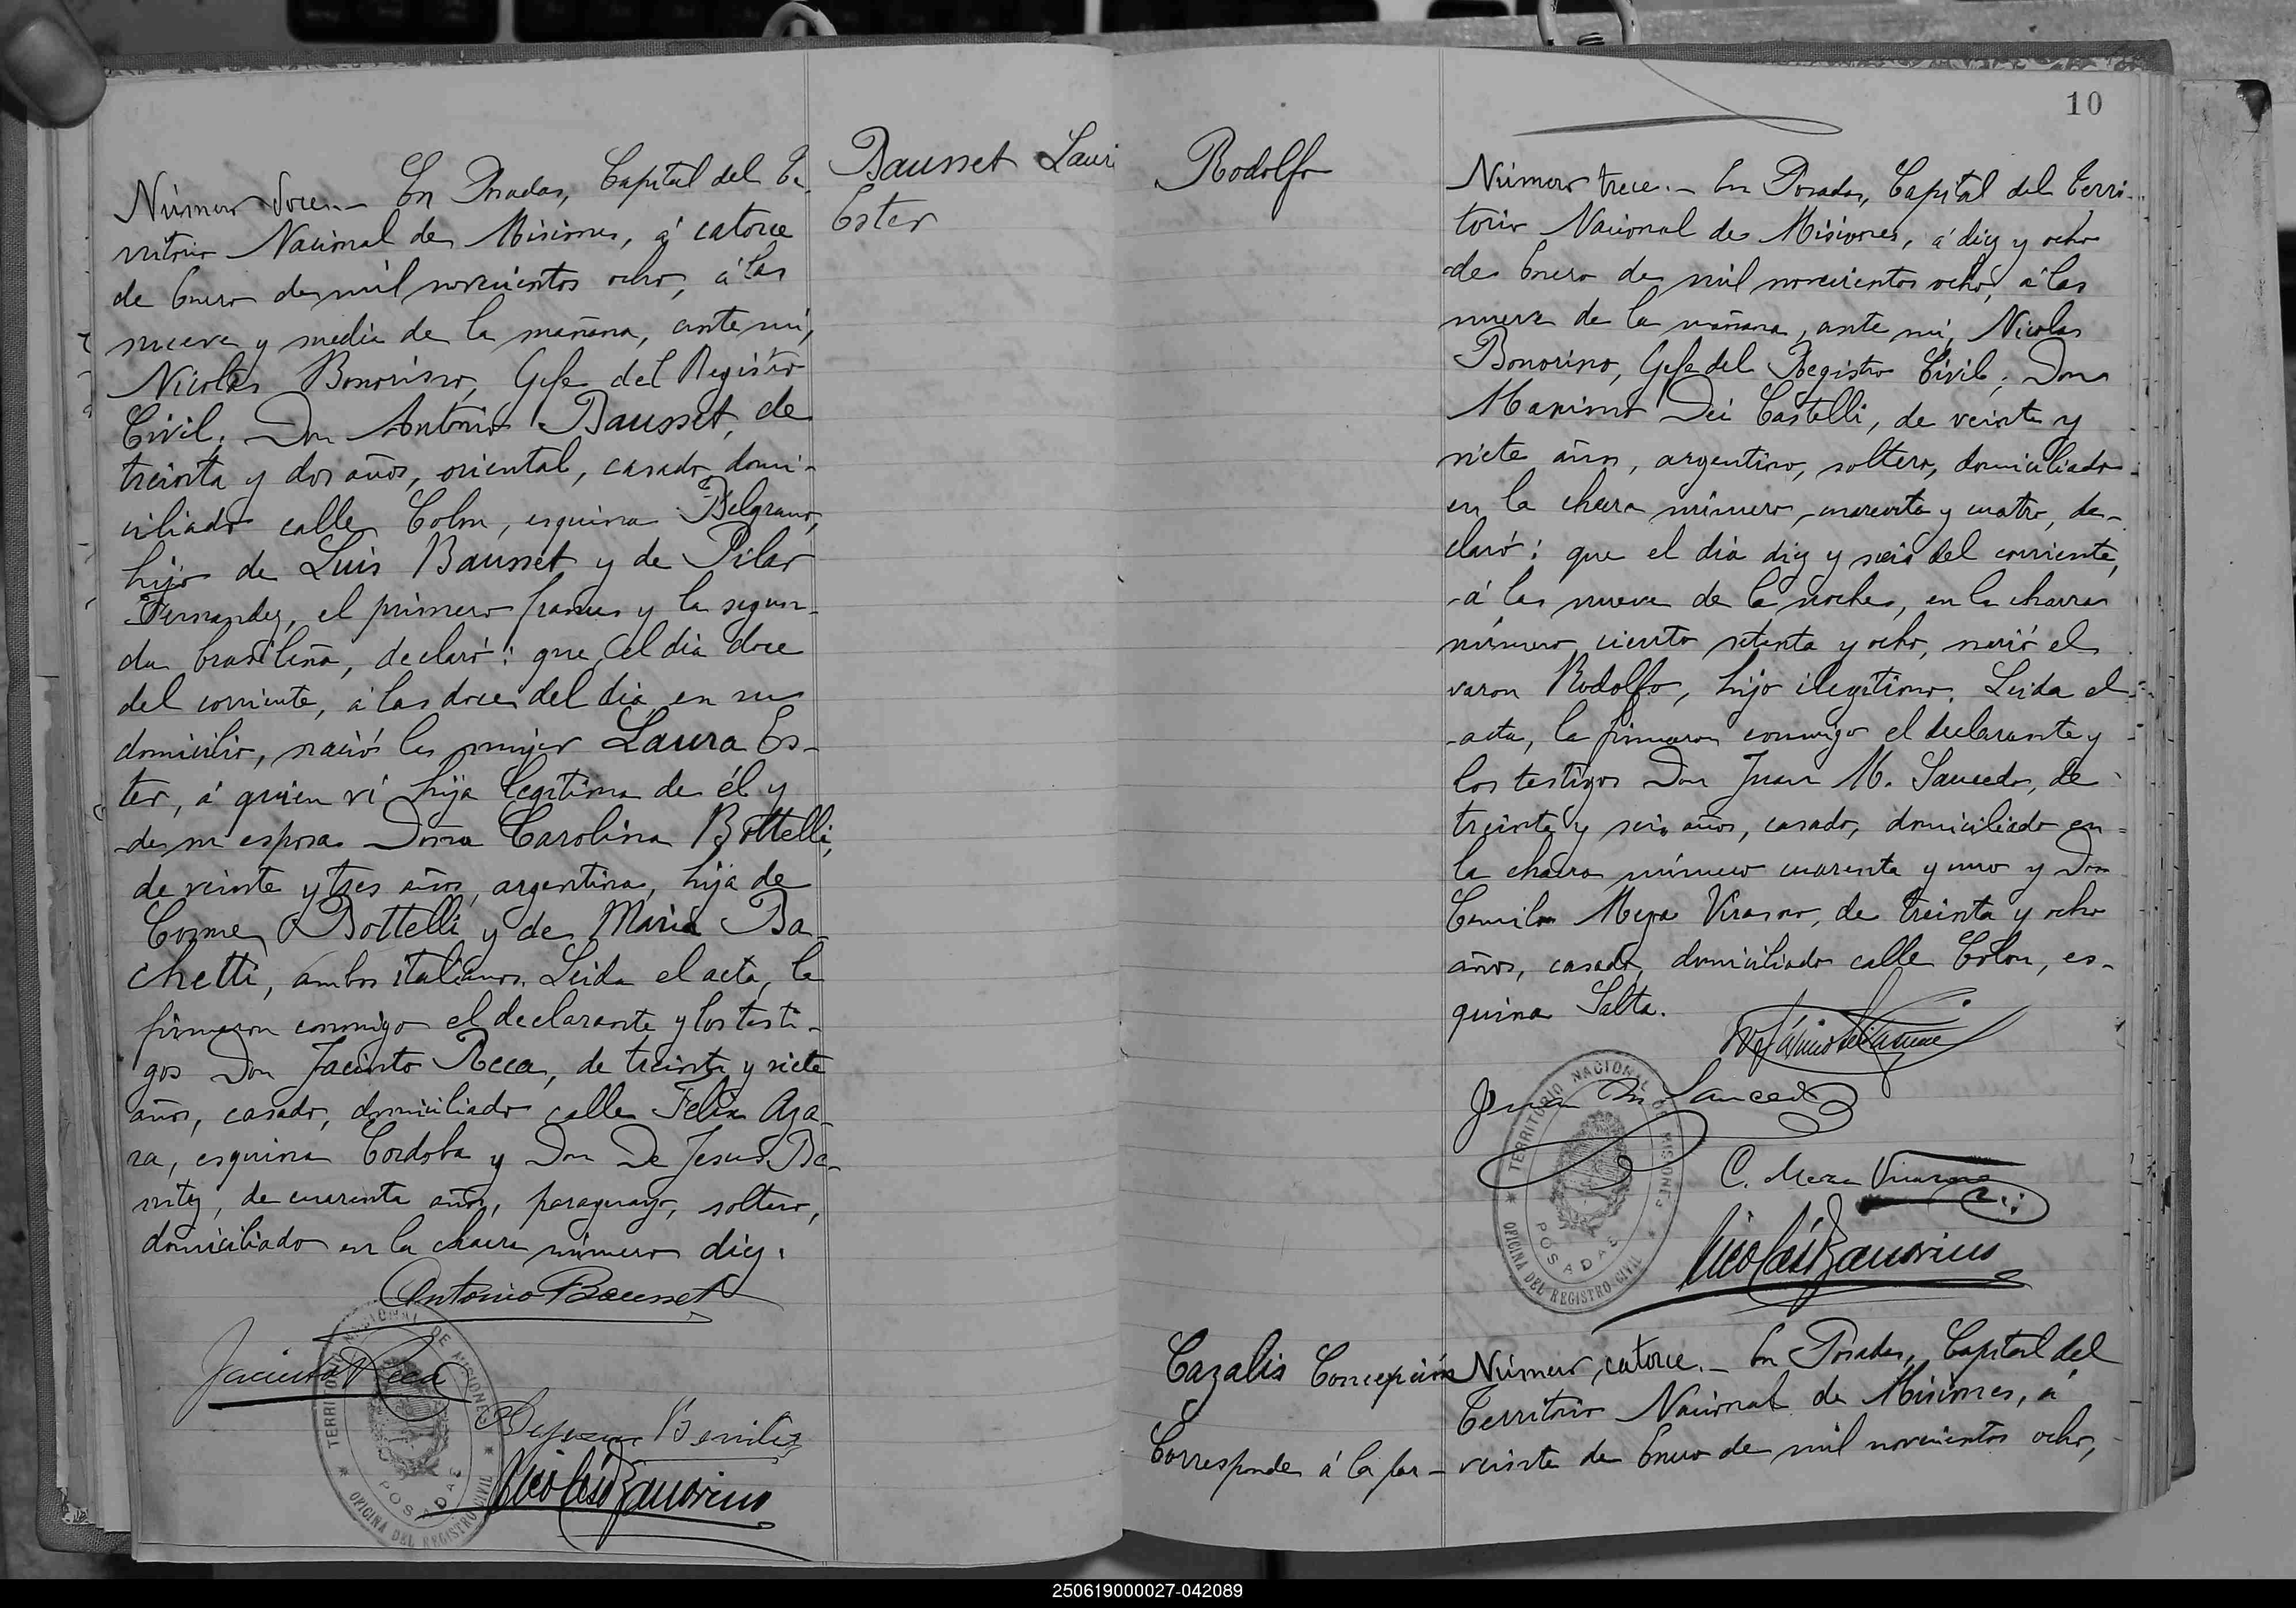 Bausset Laur
Ester
Número doce.- En Posadas, Capital del Te-
rritorio Nacional de Misiones, á catorce
de Enero de mil novecientos ocho, á las
nueve y media de la mañana, ante mi,
Nicolás Bonorino, Gefe del Registro
Civil, Don Antonio Bausset, de
treinta y dos años, oriental, casado, domi-
ciliado calle Colon, esquina Belgrano,
hijo de Luis Bausset y de Pilar
Fernandez, el primero frances y la segun-
da brasileña, declaró: que el dia doce
del corriente, á las doce del dia, en su
domicilio, nació la mujer Laura Es-
ter, á quien ví hija legitima de él y
de su esposa Doña Carolina Bottelli,
de veinte y tres años, argentina, hija de
Cosme Bottelli y de Maria Ba-
chetti, ambos italianos. Leida el acta, la
firmaron conmigo el declarante y los testi-
gos Don Jacinto Reca, de treinta y siete
años, casado, domiciliado calle Felix Aza-
ra, esquina Cordoba y Don De Jesus Be-
nitez, de cuarenta años, paraguayo, soltero,
domiciliado en la chacra número diez.
Antonio Bausset
Jacinto Reca
Dejesus Benitez
Nicolás Bonorino
TERRITORIO NACIONAL DE MISIONES
POSADAS
OFICINA DEL REGISTRO CIVIL
10
Rodolfo
Número trece.- En Posadas, Capital del Terri-
torio Nacional de Misiones, á diez y ocho
de Enero de mil novecientos ocho, á las
nueve de la mañana, ante mi, Nicolas
Bonorino, Gefe del Registro Civil, Don
Maximo Dei Castelli, de veinte y
siete años, argentino, soltero, domiciliado
en la chacra número cuarenta y cuatro, de-
claró: que el dia diez y seis del corriente,
á las nueve de la noche, en la chacra
número ciento setenta y ocho, nació el
varon Rodolfo, hijo ilegitimo. Leida el
acta, la firmaron conmigo el declarante y
los testigos Don Juan M. Saucedo, de
treinta y seis años, casado, domiciliado en
la chacra número cuarenta y uno y Don
Camilo Meza Virasoro, de treinta y ocho
años, casado, domiciliado calle Colon, es-
quina Salta.
Juan M Saucedo
C. Meza Virasoro
Nicolás Bonorino
TERRITORIO NACIONAL DE MISIONES
POSADAS
OFICINA DEL REGISTRO CIVIL
Cazalis Concepción
Corresponde á la par-
Número catorce.- En Posadas, Capital del
Territorio Nacional de Misiones, á
veinte de Enero de mil novecientos ocho,
250619000027-042089